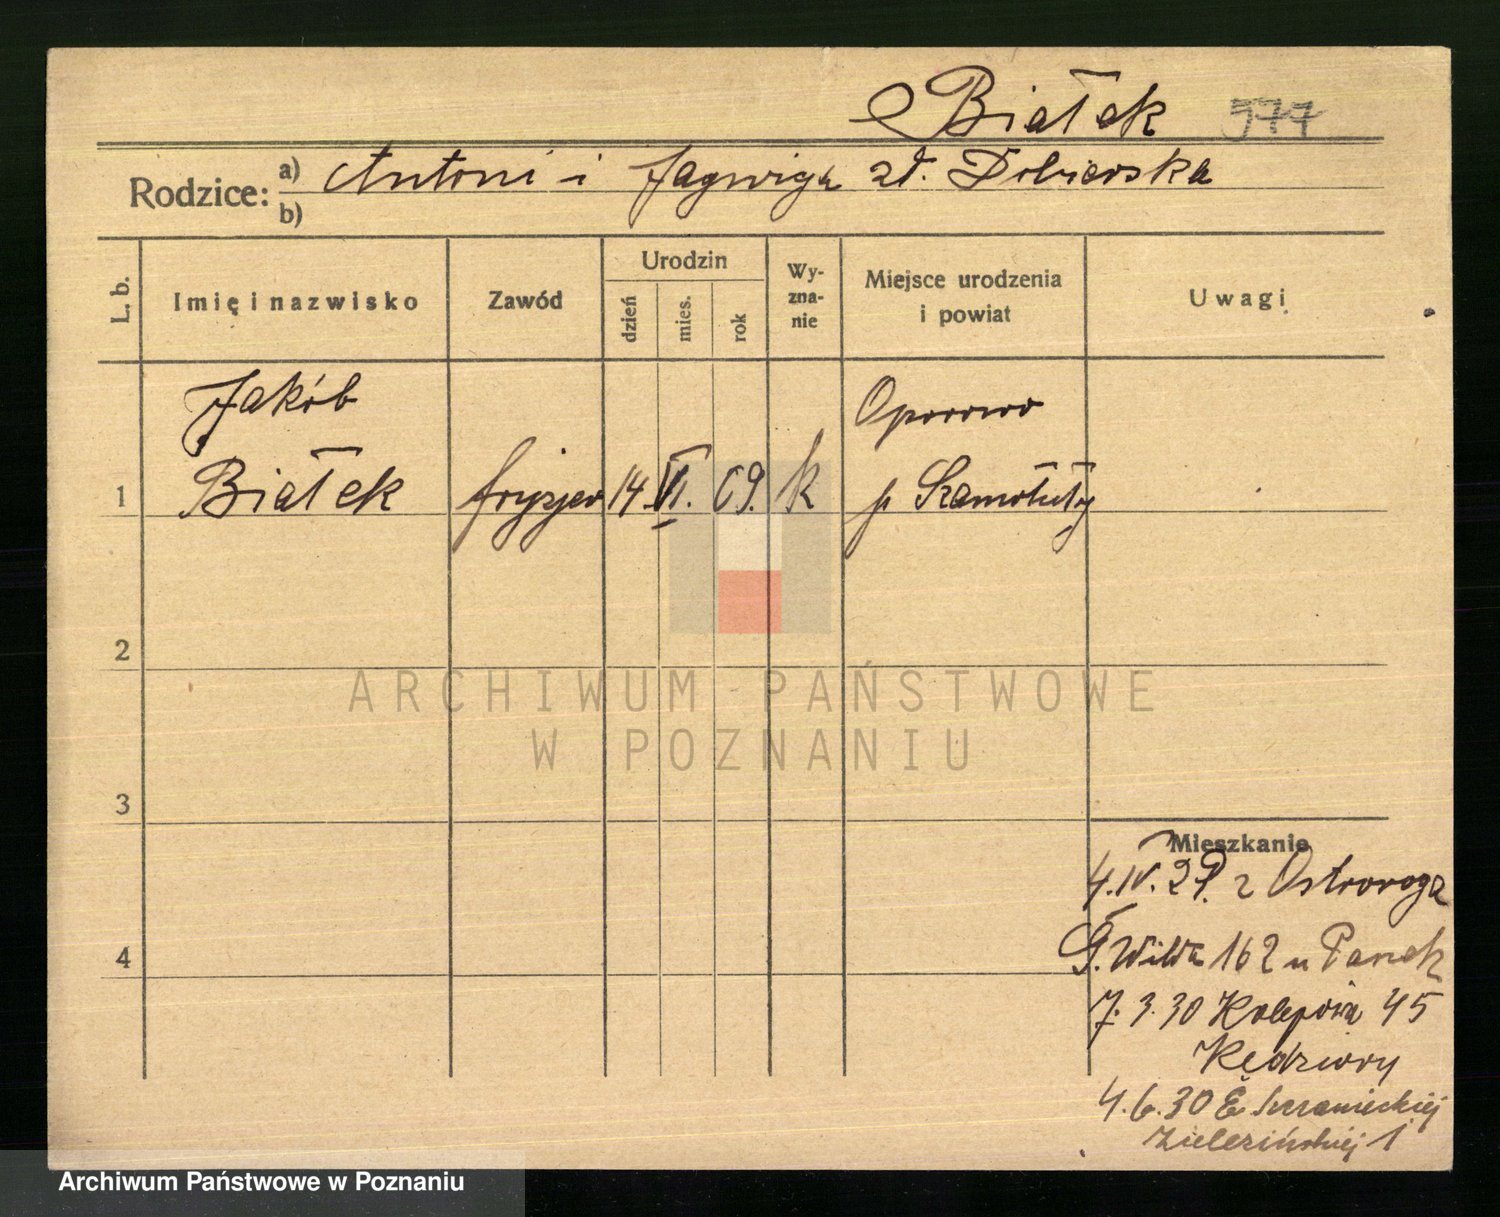 Białek 577
Rodzice: a) Antoni i Jagwiga zd. Dobierska
b)
L. b.
Imię i nazwisko
Zawód
Urodzin
dzień
mies.
rok
Wy-
zna-
nie
Miejsce urodzenia
i powiat
Uwagi
Jakób Oporowo
1 Białek fryzjer 14. VI. 09. k p Szamotuły
2
ARCHIWUM PAŃSTWOWE
W POZNANIU
3
Mieszkanie
4. IV. 29. z Ostroroga
4 G. Wilda 162 u Panek
7. 3. 30 Kolejowa 45
Kędziory
4. 6. 30 E. Sczanieckiej
1
Archiwum Państwowe w Poznaniu